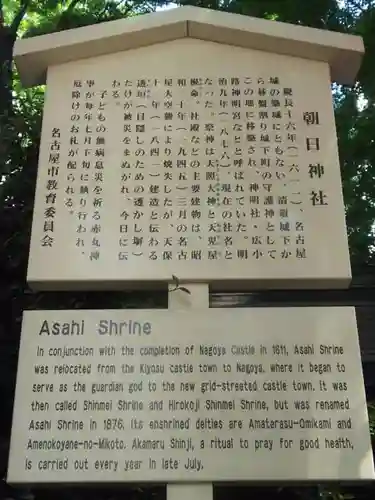 朝日神社
慶長十六年(一六一一)、名古屋
城の築城にともない、清須城下か
ら碁盤割り城下町の守護神として
この地に移築され、神明社・広小
路神明宮などと呼ばれていた。明
治九年(一八七六)、現在の社名と
なった。祭神は天照大神と天児屋
根命。社殿などの主要建物は、昭
和二十年(一九四五)三月の名古
屋大空襲により焼失したが、天保
十三年(一八四二)建造と伝わる
透垣(目隠しのための透かし塀)
だけが被災をまぬがれ、今日に伝
わる。
子どもの無病息災を祈る赤丸神
事が毎年七月下旬に執り行われ、
厄除けのお札が配られる。
名古屋市教育委員会
Asahi Shrine
In conjunction with the completion of Nagoya Castle in 1611, Asahi Shrine
was relocated from the Kiyosu castle town to Nagoya, where it began to
serve as the guardian god to the new grid-streeted castle town. It was
then called Shinmei Shrine and Hirokoji Shinmei Shrine, but was renamed
Asahi Shrine in 1876. Its enshrined deities are Amaterasu-Omikami and
Amenokoyane-no-Mikoto. Akamaru Shinji, a ritual to pray for good health,
is carried out every year in late July.